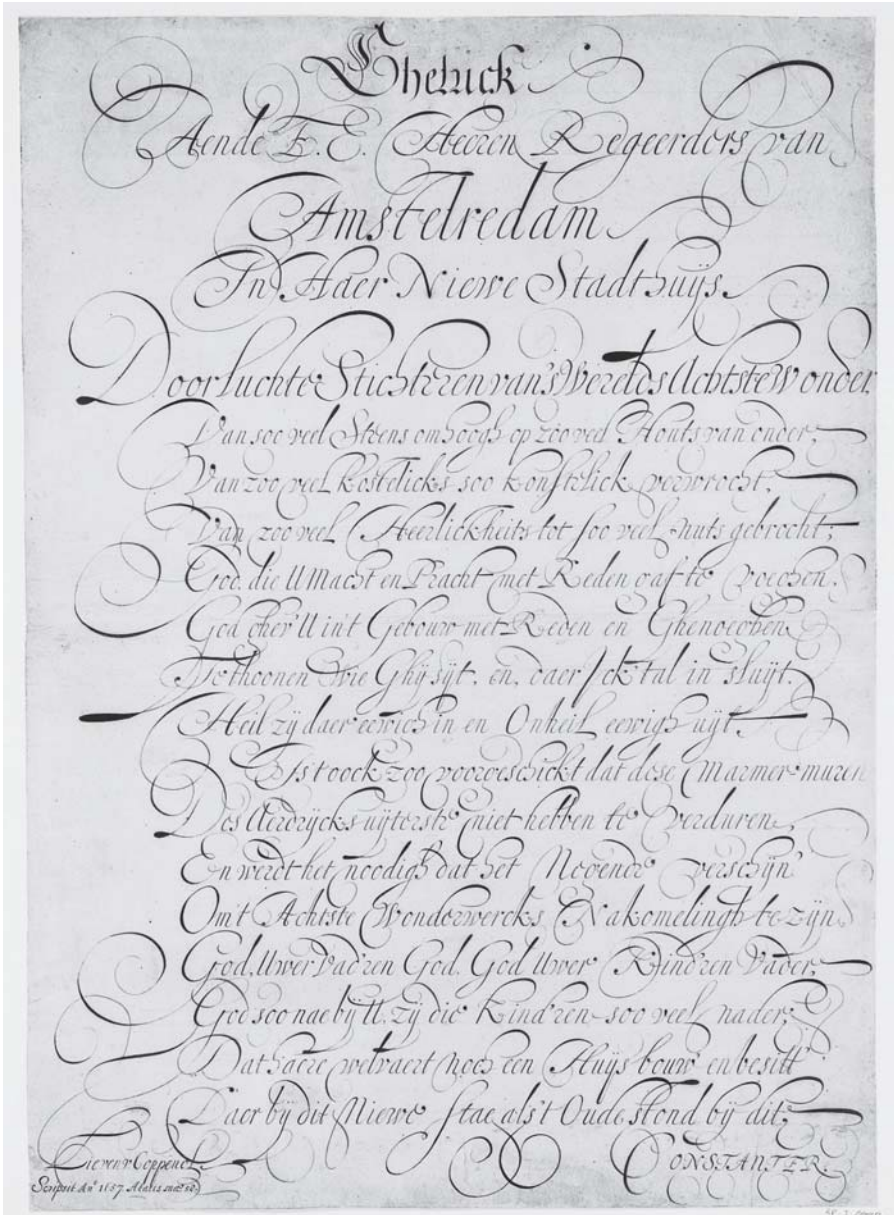 Gheluck
Aende E. E. Heeren Regeerders van
Amstelredam
In Haer Niewe Stadthuijs
Doorluchte Stichteren van's Werelds Achtste Wonder
Van soo veel Steens omhoogh op zoo veel Houts van onder,
Van zoo veel kostelicks soo konstelick verwrocht,
Van zoo veel Heerlickheits tot soo veel nuts gebrocht;
God, die U Macht en Pracht met Reden gaf te voeghen,
God ghev' U in't Gebouw met Reden en Ghenoeghen
Te thoonen wie Ghij sijt, en, daer Ick 't al in sluijt,
Heil zij daer eewich in en Onheil eewigh uijt.
Is't oock zoo voorgeschickt dat dese Marmer-muren
Des Aerdrijcks uijterste niet hebben te verduren,
En werdt het noodigh dat het Negende verschijn'
Om't Achtste Wonderwercks Nakomelingh te zijn,
God, Uwer Vad'ren God, God Uwer Kind'ren Vader,
God soo naebij U, zij die Kind'ren soo veel nader,
Dat haere welvaert noch een Huijs bouw' en besitt'
Daer bij dit Niewe stae als't Oude stond bij dit.
CONSTANTER.
Lieven v Coppenol
Scripsit Anº 1657. Ætatis suæ 58.